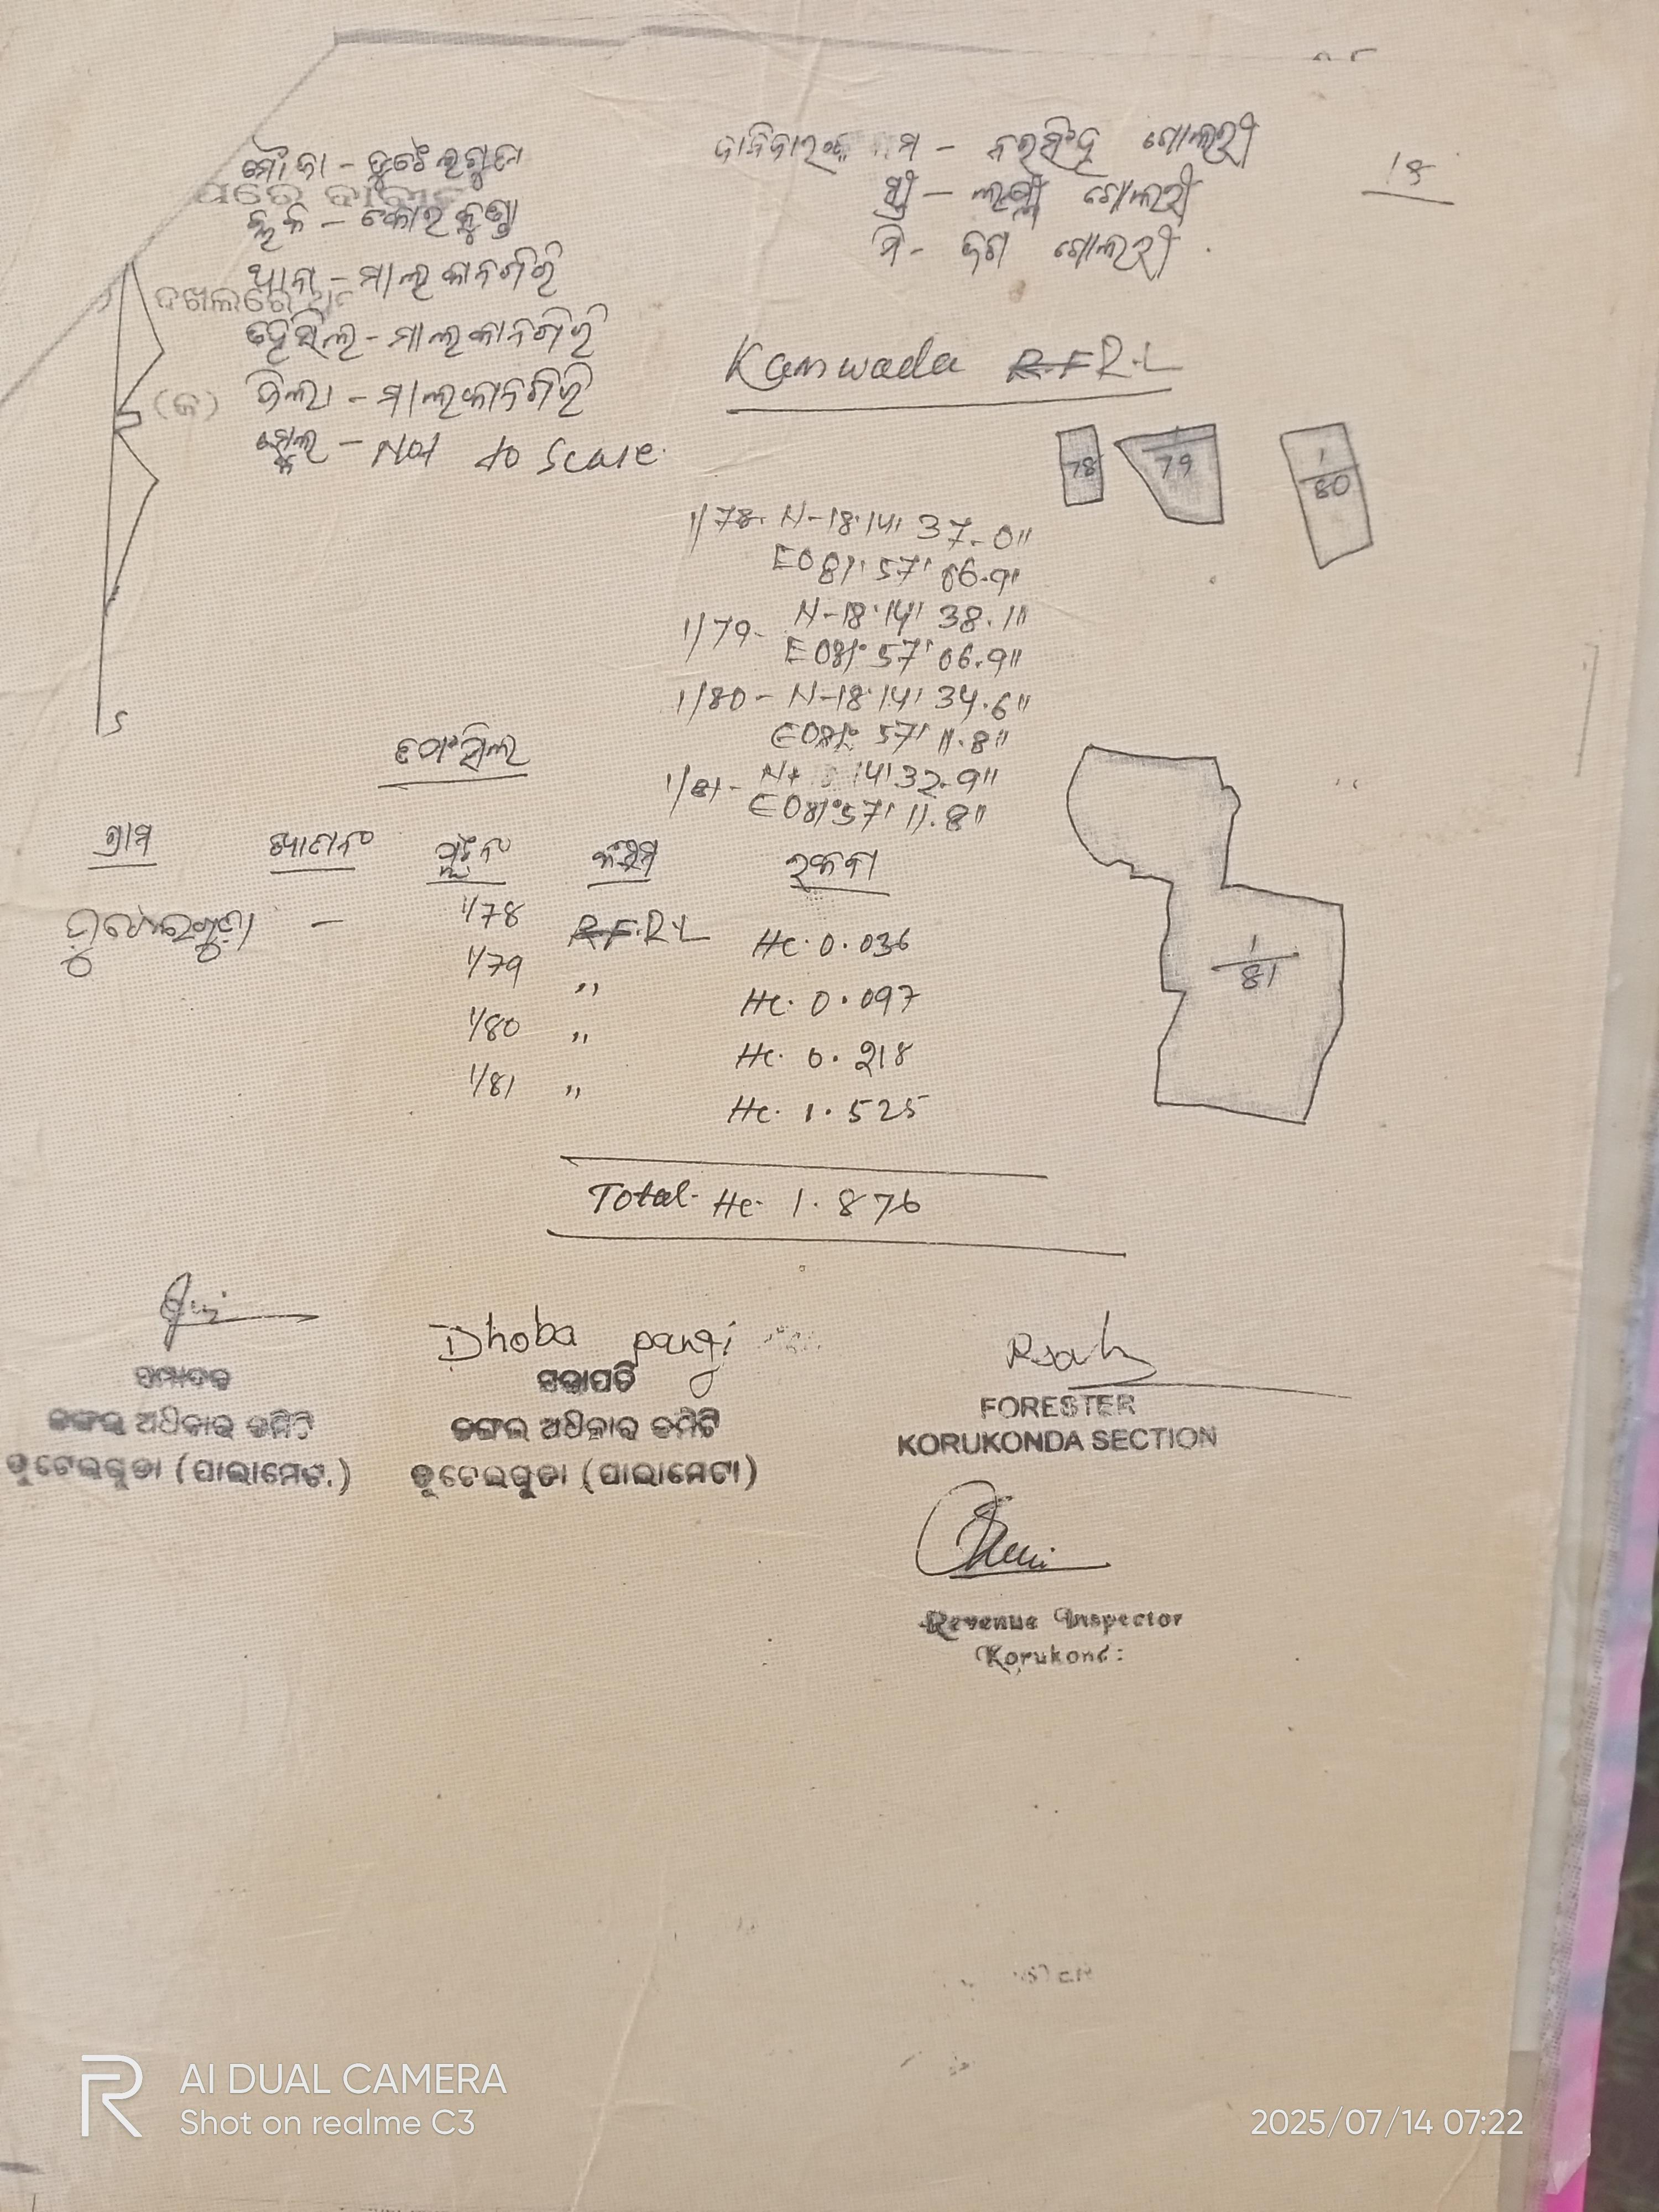 ମୌଜା - ଡୁଟେଇଗୁଡା
ବ୍ଲକ - କୋରୁକୁଣ୍ଡା
ଥାନା - ମାଲକାନଗିରି
ତହସିଲ - ମାଲକାନଗିରି
ଜିଲ୍ଲା - ମାଲକାନଗିରି
ସ୍କେଲ - Not to Scale.
ଦଖଲରେ
(କ)
S
ନରସିଂହ ଗୋଲରୀ
ସ୍ତ୍ରୀ - ଲକ୍ଷ୍ମୀ ଗୋଲରୀ
ପି - ଜଗ ଗୋଲରୀ
18
Kamwada R.F R.L
78
1/79
1/80
1/78. N-18°14' 37.0"
E081° 57' 06.9"
1/79- N-18°14' 38.1"
E081° 57' 06.9"
1/80 - N-18°14' 34.6"
E081° 57' 11.8"
1/81- N 14' 32.9"
E081° 57' 11.8"
1/81
ତଫସିଲ
ଗ୍ରାମ ଖାତା ନଂ ପ୍ଲଟ ନଂ କିସମ ରକବା
ଡୁଟେଇଗୁଡା - 1/78 R.F. R.L Hc. 0.036
1/79 " Hc. 0.097
1/80 " Hc. 0.218
1/81 " Hc. 1.525
Total- Hc- 1.876
Dhoba pangi
ସମ୍ପାଦକ
ଜଙ୍ଗଲ ଅଧିକାର କମିଟି
ଡୁଟେଇଗୁଡା (ପାଲାମେଟା)
ସଭାପତି
ଜଙ୍ଗଲ ଅଧିକାର କମିଟି
ଡୁଟେଇଗୁଡା (ପାଲାମେଟା)
FORESTER
KORUKONDA SECTION
Revenue Inspector
AI DUAL CAMERA
Shot on realme C3
2025/07/14 07:22